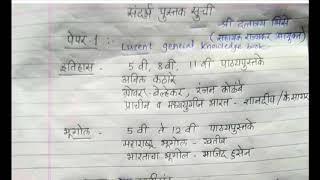 संदर्भ पुस्तक सूची
श्री दत्तात्रय भिसे
(सहायक राज्यकर आयुक्त)
पेपर-1 :- Lucent general knowledge book
इतिहास - 5 वी, 8 वी, 11 वी पाठ्यपुस्तके
अनिल कठारे
ग्रोवर - बेल्हेकर, रंजन कोळंबे
प्राचीन व मध्ययुगीन भारत - ज्ञानदीप / के सागर
भूगोल - 5 वी ते 12 वी पाठ्यपुस्तके
महाराष्ट्र भूगोल - खतीब
भारताचा भूगोल - माजिद हुसेन